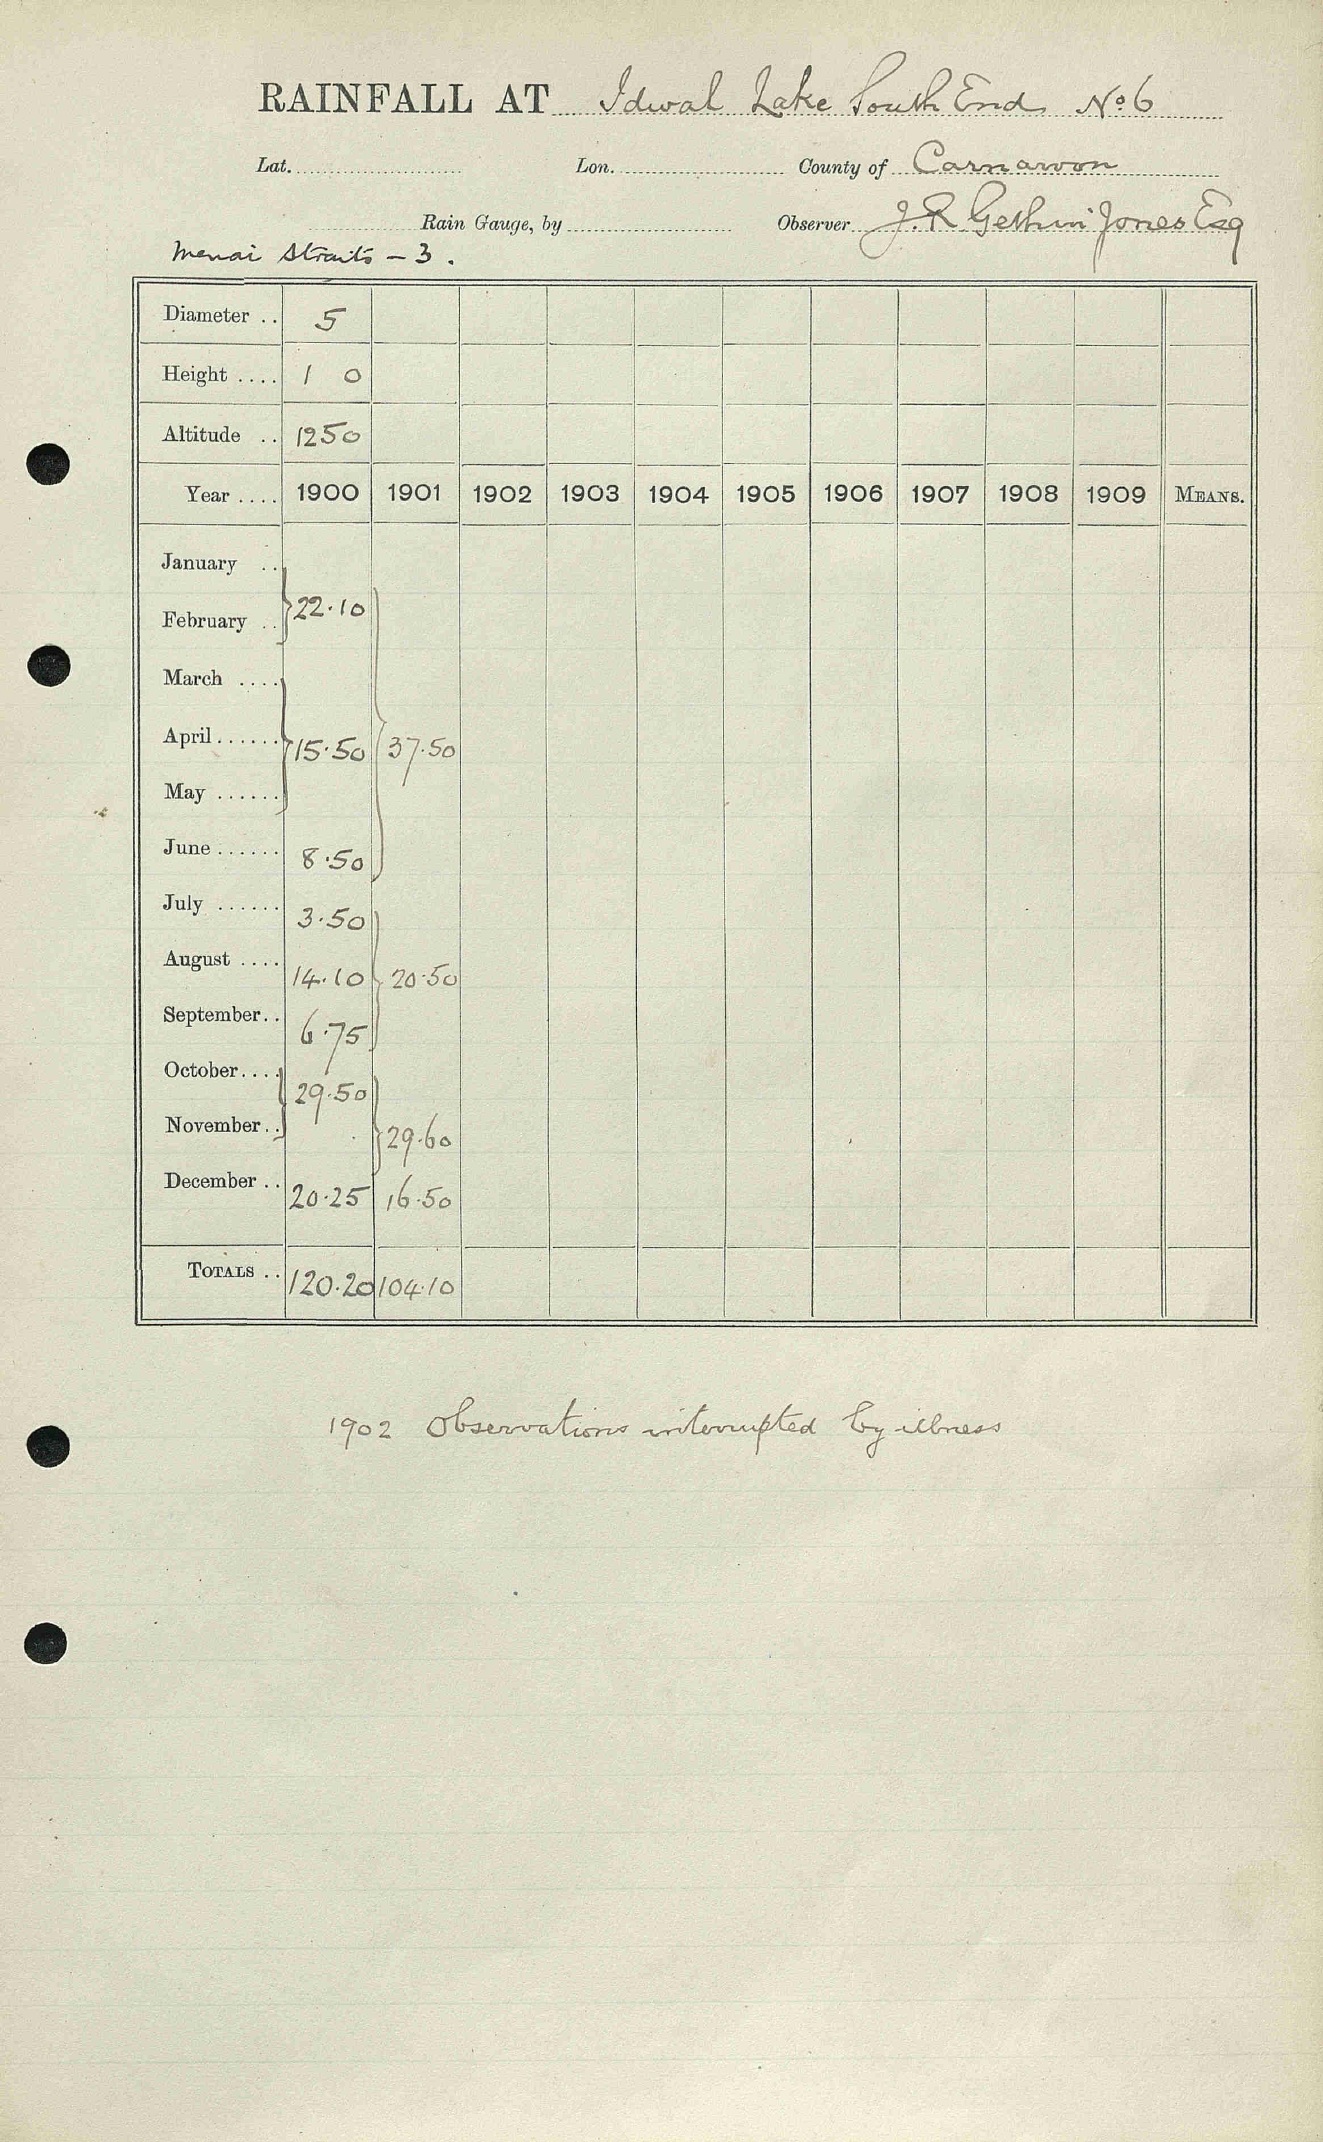 RAINFALL AT Idwal Lake South End No 6
Lat. Lon. County of Carnarvon
Rain Gauge, by Observer J. R. Gethin Jones Esq
Menai Straits - 3.
Diameter .. 5
Height .... 1 0
Altitude .. 1250
Year .... 1900 1901 1902 1903 1904 1905 1906 1907 1908 1909 MEANS.
January ..
February .. 22.10
March ....
April ...... 15.50 37.50
May ......
June ...... 8.50
July ...... 3.50
August .... 14.10 20.50
September.. 6.75
October.... 29.50
November.. 29.60
December .. 20.25 16.50
TOTALS .. 120.20 104.10
1902 Observations interrupted by illness